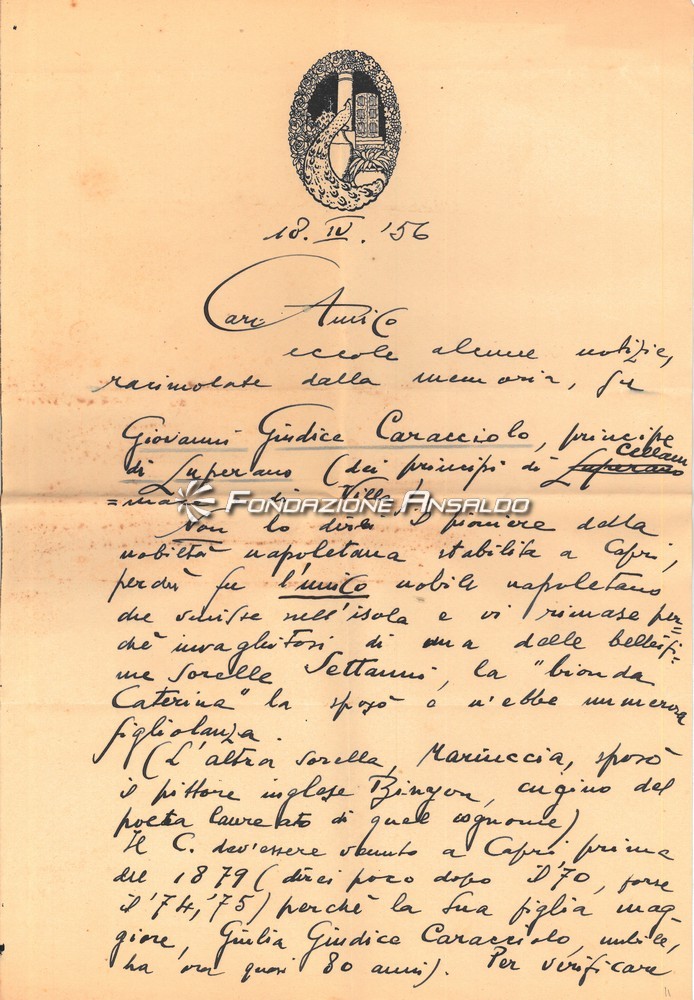 18. IV. '56
Caro Amico
eccole alcune notizie,
racimolate dalla memoria, su
Giovanni Giudice Caracciolo, principe
di Luperano (dei principi di Luperano Cellam=
=mare di Villa
FONDAZIONE ANSALDO
Non lo direi il pioniere della
nobiltà napoletana stabilita a Capri,
perché fu l'unico nobile napoletano
che venisse nell'isola e vi rimase per=
ché invaghitosi di una delle bellissi=
me sorelle Settanni, la "bionda
Caterina" la sposò e n'ebbe numerosa
figliolanza.
(L'altra sorella, Mariuccia, sposò
il pittore inglese Binyon, cugino del
poeta laureato di quel cognome)
Il C. dev'essere venuto a Capri prima
del 1879 (direi poco dopo il '70, forse
il '74, '75) perché la sua figlia mag-
giore, Giulia Giudice Caracciolo, nubile,
ha ora quasi 80 anni). Per verificare
11